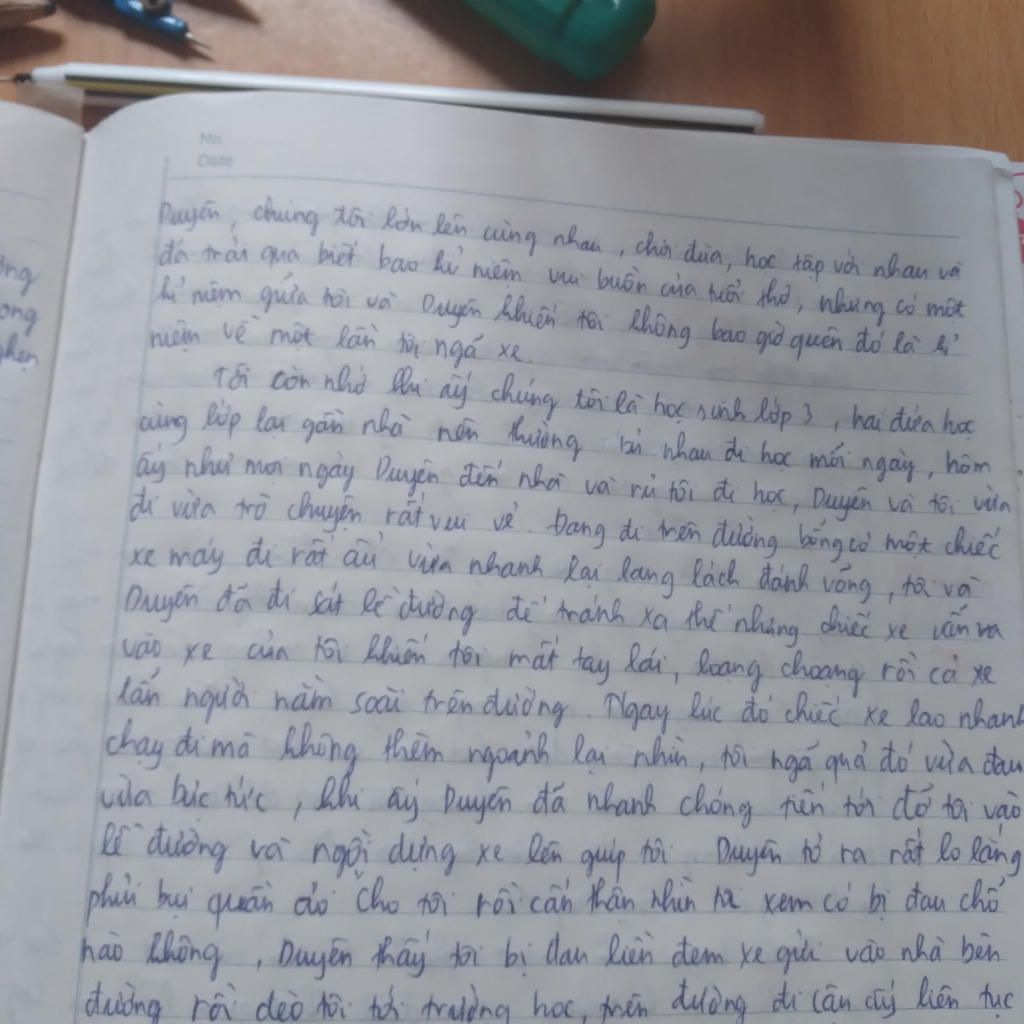 No.
Date
ong
ong
ghen
Duyên, chúng tôi lớn lên cùng nhau, chơi đùa, học tập với nhau và
đã trải qua biết bao kỉ niệm vui buồn của tuổi thơ, nhưng có một
kỉ niệm giữa tôi và Duyên khiến tôi không bao giờ quên đó là kỉ
niệm về một lần tôi ngã xe.
Tôi còn nhớ khi ấy chúng tôi là học sinh lớp 3, hai đứa học
cùng lớp lại gần nhà nên thường rủ nhau đi học mỗi ngày, hôm
ấy như mọi ngày Duyên đến nhà và rủ tôi đi học, Duyên và tôi vừa
đi vừa trò chuyện rất vui vẻ. Đang đi trên đường bỗng có một chiếc
xe máy đi rất ẩu vừa nhanh lại lạng lách đánh võng, tôi và
Duyên đã đi sát lề đường để tránh xa thế nhưng chiếc xe vẫn va
vào xe của tôi khiến tôi mất tay lái, loạng choạng rồi cả xe
lẫn người nằm soài trên đường. Ngay lúc đó chiếc xe lao nhanh
chạy đi mà không thèm ngoảnh lại nhìn, tôi ngã quả đó vừa đau
vừa bực tức, khi ấy Duyên đã nhanh chóng tiến tới đỡ tôi vào
lề đường và ngồi dựng xe lên giúp tôi. Duyên tỏ ra rất lo lắng
phủi bụi quần áo cho tôi rồi cẩn thân nhìn tôi xem có bị đau chỗ
nào không, Duyên thấy tôi bị đau liền đem xe gửi vào nhà bên
đường rồi đèo tôi tới trường học, trên đường đi cậu ấy liên tục